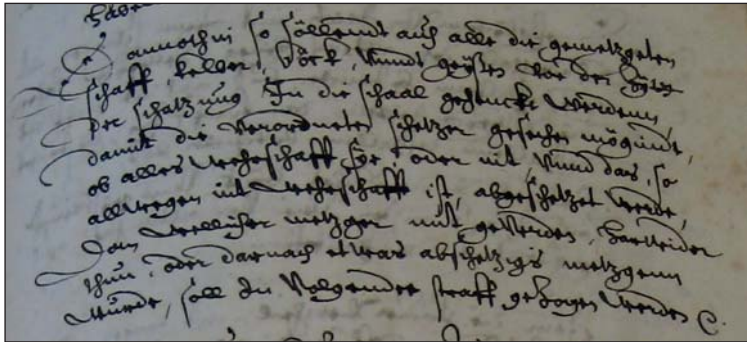 haben
Dannothin so söllendt auch alle die gemetzgeten
schaff, kelber, Böck, Unndt geyssen vor der
der schatzung In die schaal gehenckt werdenn,
damit die verordneten schetzer gesechen mögindt,
ob alles wehrschafft sye, oder nit, Unnd das, so
allwegen nit wehrschafft ist, abgeschetzet werde,
Dan wellicher metzger nut gewerden, harwider
thun, oder darnach etwas abschetzigs metzgenn
wurde, soll In Volgender straff gezogen werden